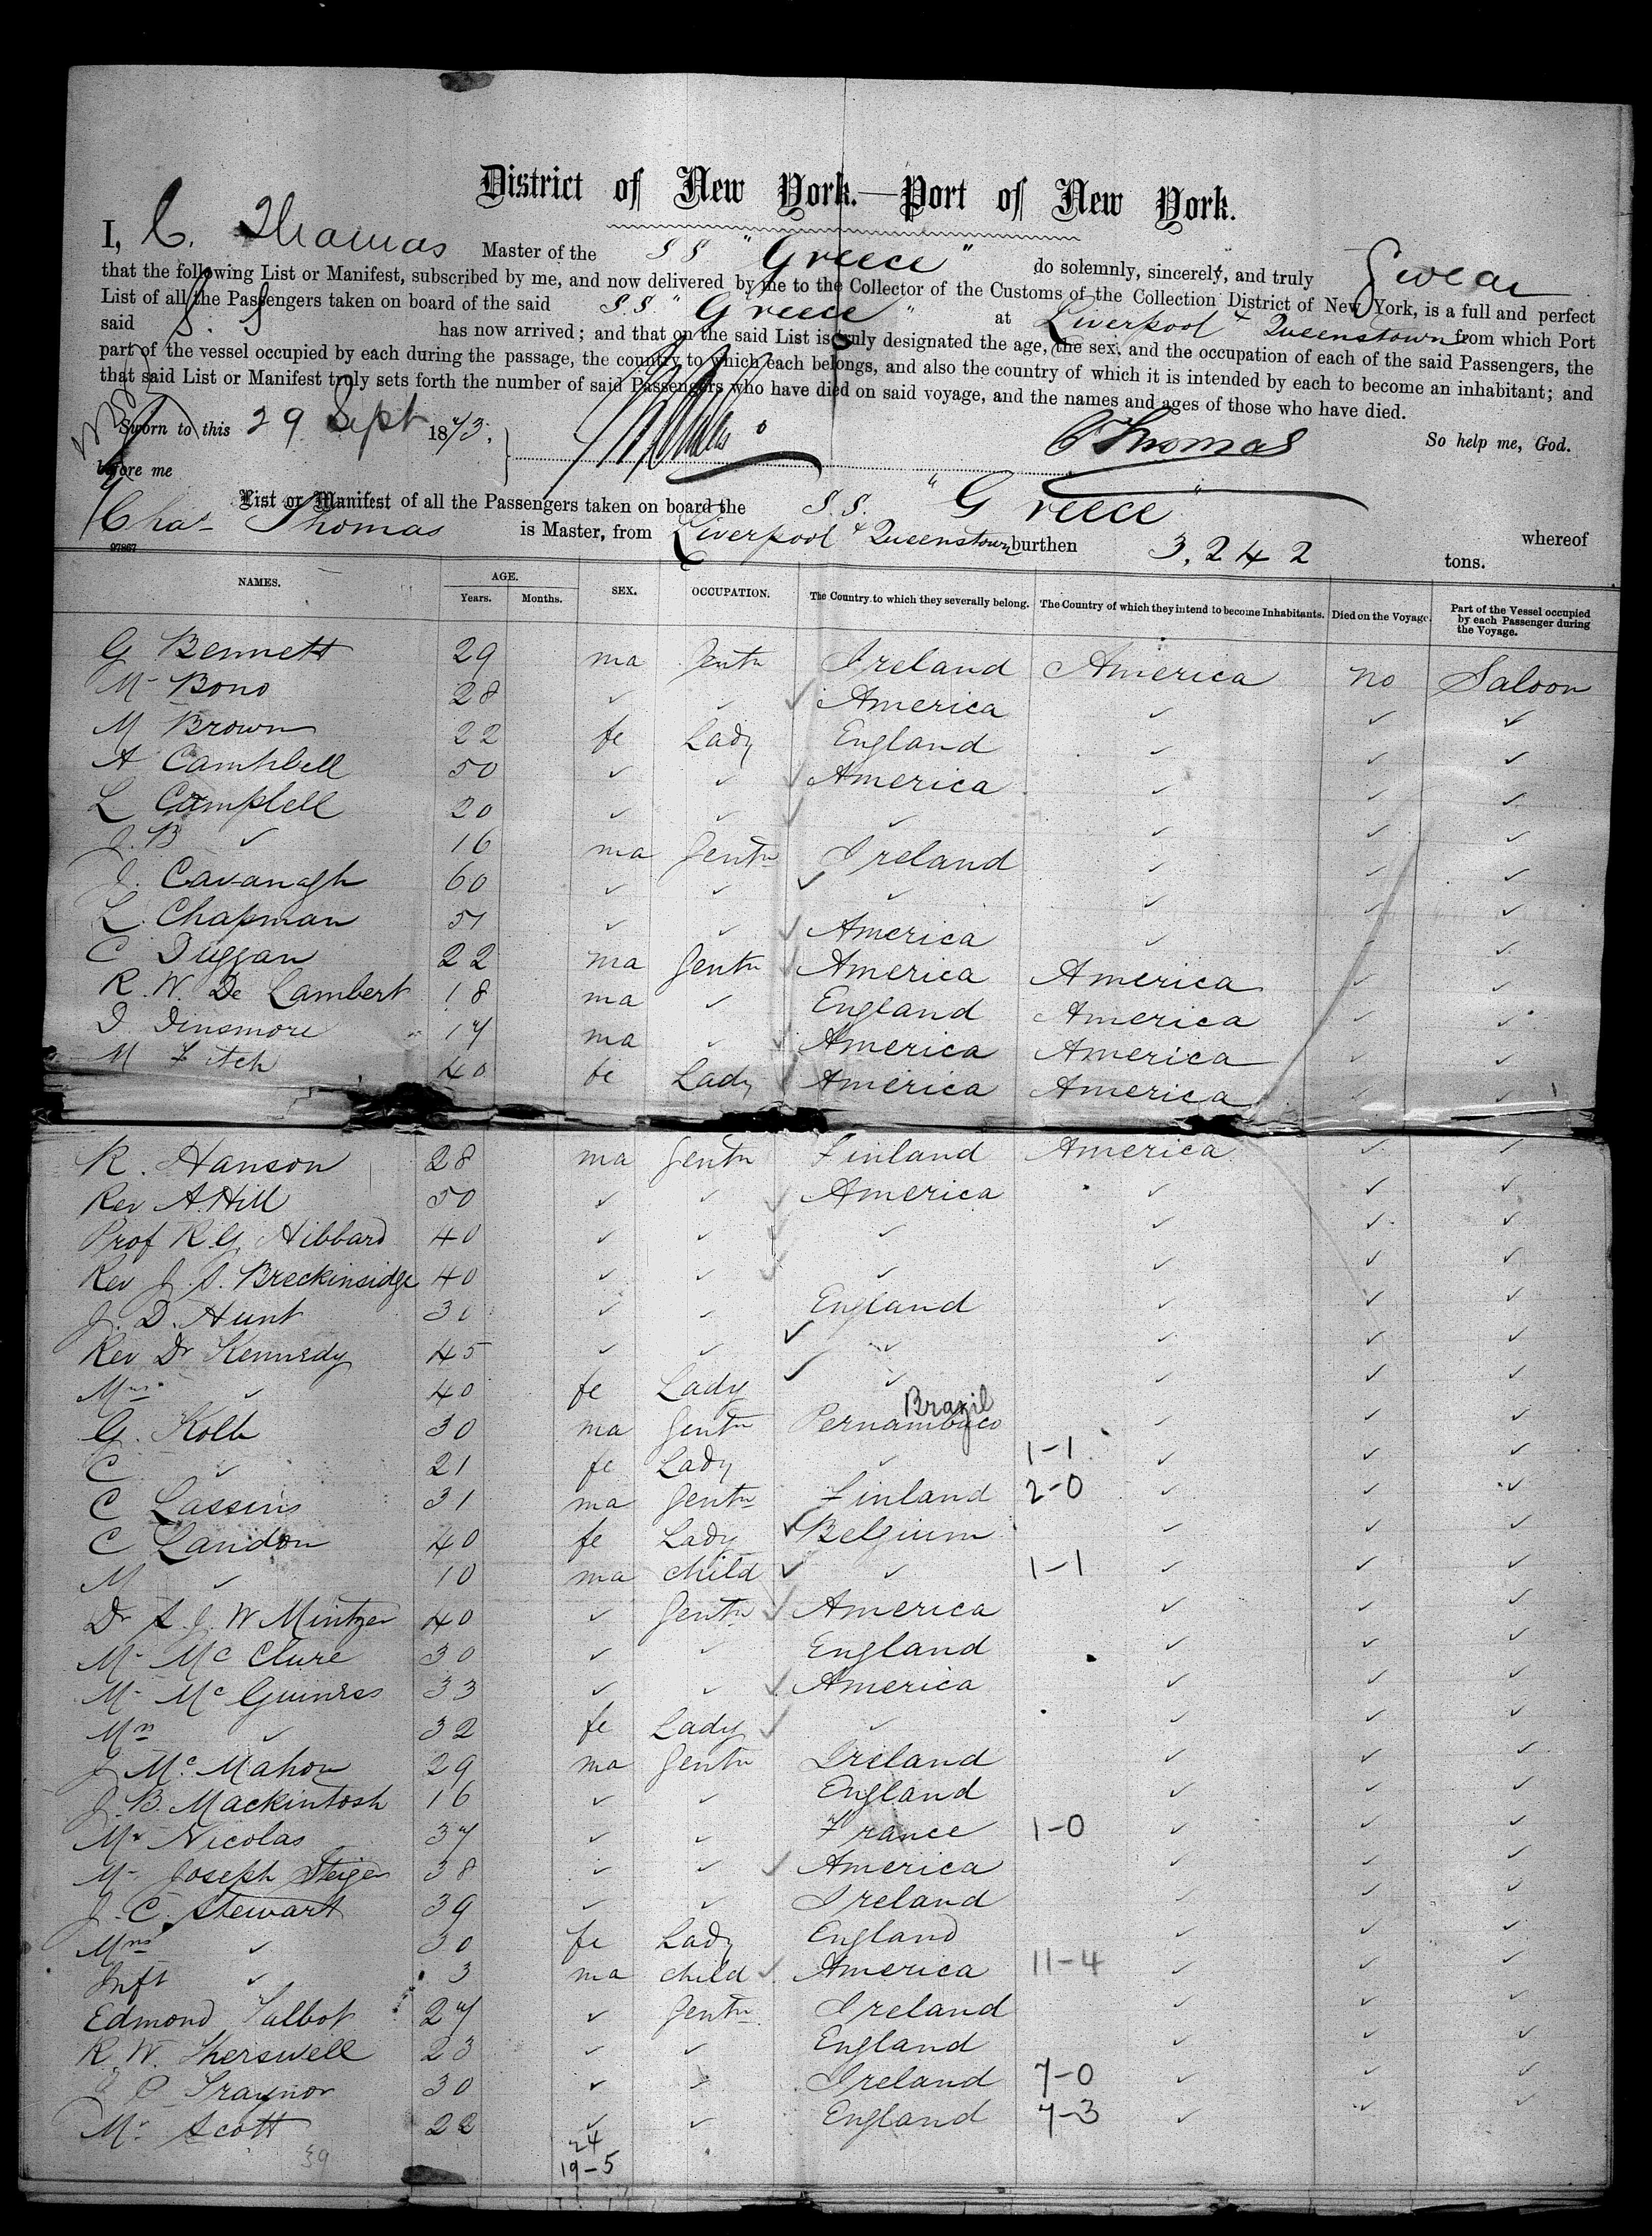 District of New York.—Port of New York.
I, C. Thomas Master of the SS "Greece" do solemnly, sincerely, and truly Swear
that the following List or Manifest, subscribed by me, and now delivered by me to the Collector of the Customs of the Collection District of New York, is a full and perfect
List of all the Passengers taken on board of the said S.S. "Greece" at Liverpool & Queenstown from which Port
said S. S has now arrived; and that on the said List is truly designated the age, the sex, and the occupation of each of the said Passengers, the
part of the vessel occupied by each during the passage, the country to which each belongs, and also the country of which it is intended by each to become an inhabitant; and
that said List or Manifest truly sets forth the number of said Passengers who have died on said voyage, and the names and ages of those who have died.
So help me, God.
Sworn to this 29 Sept 1873, C Thomas
before me
List or Manifest of all the Passengers taken on board the S.S. "Greece" whereof
Chas Thomas is Master, from Liverpool & Queenstown burthen 3,242 tons.
97867
NAMES. AGE. Years. Months. SEX. OCCUPATION. The Country to which they severally belong. The Country of which they intend to become Inhabitants. Died on the Voyage. Part of the Vessel occupied by each Passenger during the Voyage.
G Bennett 29 ma Gentn Ireland America no Saloon
Mr Bono 28 ✓ ✓ ✓ America ✓ ✓ ✓
M Brown 22 fe Lady England ✓ ✓ ✓
A Campbell 50 ✓ ✓ ✓ America ✓ ✓ ✓
L Campbell 20 ✓ ✓ ✓ ✓ ✓ ✓ ✓
J. B ✓ 16 ma Gentn Ireland ✓ ✓ ✓
J. Cavanagh 60 ✓ ✓ ✓ ✓ ✓ ✓ ✓
L. Chapman 51 ✓ ✓ ✓ America ✓ ✓ ✓
C Duggan 22 ma Gentn ✓ America America ✓ ✓
R. W. De Lambert 18 ma ✓ England America ✓ ✓
D Dinsmore 17 ma ✓ ✓ America America ✓ ✓
M Fitch 40 fe Lady ✓ America America ✓ ✓
R. Hanson 28 ma Gentn Finland America ✓ ✓
Rev A. Hill 50 ✓ ✓ ✓ America ✓ ✓ ✓
Prof R. G. Hibbard 40 ✓ ✓ ✓ ✓ ✓ ✓ ✓
Rev J. S. Breckinsidge 40 ✓ ✓ ✓ ✓ ✓ ✓ ✓
J. D. Hunt 30 ✓ ✓ England ✓ ✓ ✓
Rev Dr Kennedy 45 ✓ ✓ ✓ ✓ ✓ ✓ ✓
Mrs ✓ 40 fe Lady ✓ ✓ ✓ ✓ ✓
Brazil
G. Kolb 30 ma Gentn Pernambuco ✓ ✓ ✓
C ✓ 21 fe Lady ✓ 1-1 ✓ ✓ ✓
C Lassins 31 ma Gentn Finland 2-0 ✓ ✓ ✓
C Landon 40 fe Lady ✓ Belgium ✓ ✓ ✓
M ✓ 10 ma child ✓ ✓ 1-1 ✓ ✓ ✓
Dr S. J. W Mintzer 40 ✓ Gentn ✓ America ✓ ✓ ✓
Mr Mc Clure 30 ✓ ✓ England ✓ ✓ ✓
Mr Mc Guiness 33 ✓ ✓ ✓ America ✓ ✓ ✓
Mrs ✓ 32 fe Lady ✓ ✓ ✓ ✓ ✓
J Mc Mahon 29 ma Gentn Ireland ✓ ✓ ✓
J. B. Mackintosh 16 ✓ ✓ England ✓ ✓ ✓
Mr Nicolas 37 ✓ ✓ France 1-0 ✓ ✓ ✓
Mr Joseph Steiger 38 ✓ ✓ ✓ America ✓ ✓ ✓
J. C. Stewart 39 ✓ ✓ Ireland ✓ ✓ ✓
Mrs ✓ 30 fe Lady England ✓ ✓ ✓
Inft ✓ 3 ma child ✓ America 11-4 ✓ ✓ ✓
Edmond Talbot 27 ✓ Gentn Ireland ✓ ✓ ✓
R. W. Therswell 23 ✓ ✓ England ✓ ✓ ✓
J P Traynor 30 ✓ ✓ Ireland 7-0 ✓ ✓ ✓
Mr Scott 22 ✓ ✓ England 7-3 ✓ ✓ ✓
39 24
19-5